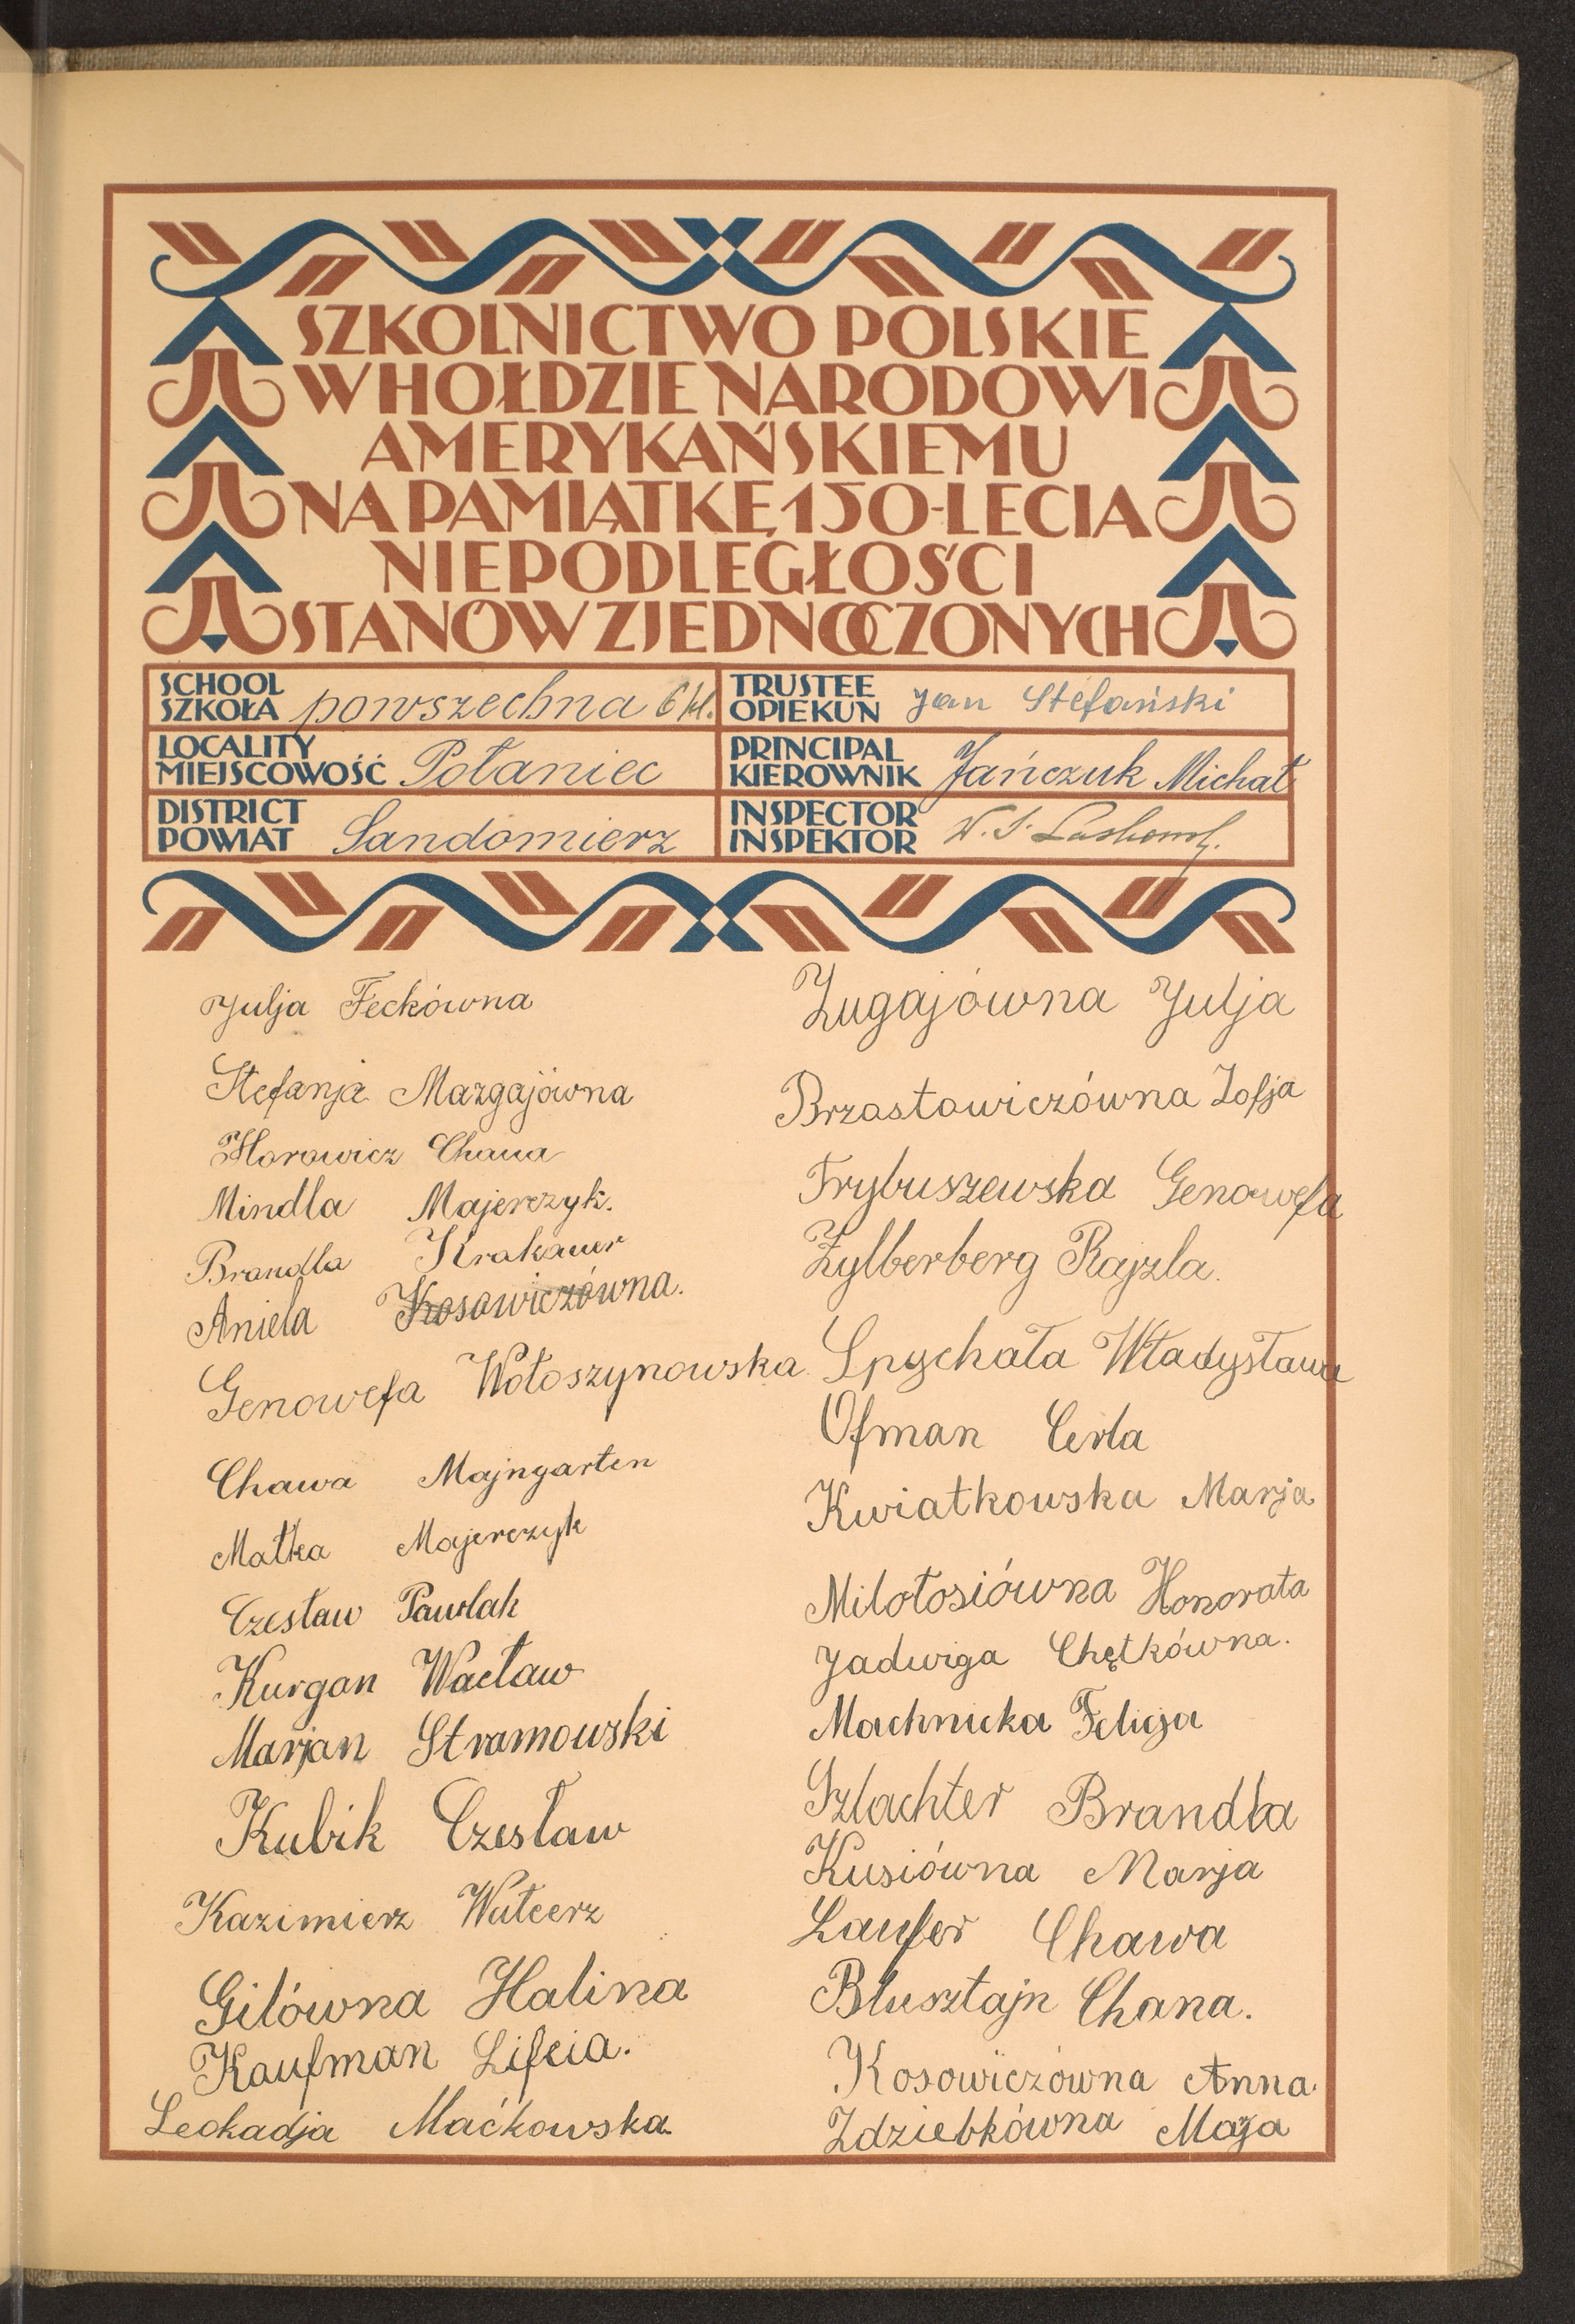 SZKOLNICTWO POLSKIE
W HOŁDZIE NARODOWI
AMERYKAŃSKIEMU
NA PAMIĄTKĘ 150-LECIA
NIEPODLEGŁOŚCI
STANÓW ZJEDNOCZONYCH
SCHOOL
SZKOŁA powszechna 6 kl.
TRUSTEE
OPIEKUN Jan Stefański
LOCALITY
MIEJSCOWOŚĆ Połaniec
PRINCIPAL
KIEROWNIK Jańczuk Michał
DISTRICT
POWIAT Sandomierz
INSPECTOR
INSPEKTOR W. S.
Julja Feckówna
Stefanja Mazgajówna
Horowicz Chaua
Mindla Majerczyk.
Brandla Krakauer
Aniela Kosowiczówna.
Genowefa Wołoszynowska
Chawa Majngarten
Małka Majerczyk
Czesław Pawlak
Kurgan Wacław
Marjan Stramowski
Kubik Czesław
Kazimierz Wałcerz
Gilówna Halina
Kaufman Lifcia.
Leokadja Maćkowska
Zugajówna Julja
Brzostowiczówna Zofja
Trybuszewska Genowefa
Zylberberg Rajzla.
Spychała Władysława
Ofman Cerla
Kwiatkowska Marja
Miłotosiówna Honorata
Jadwiga Chętkówna.
Machnicka Felicja
Szlachter Brandla
Kusiówna Marja
Laufer Chawa
Blusztajn Chana.
Kosowiczówna Anna.
Zdziebkówna Marja